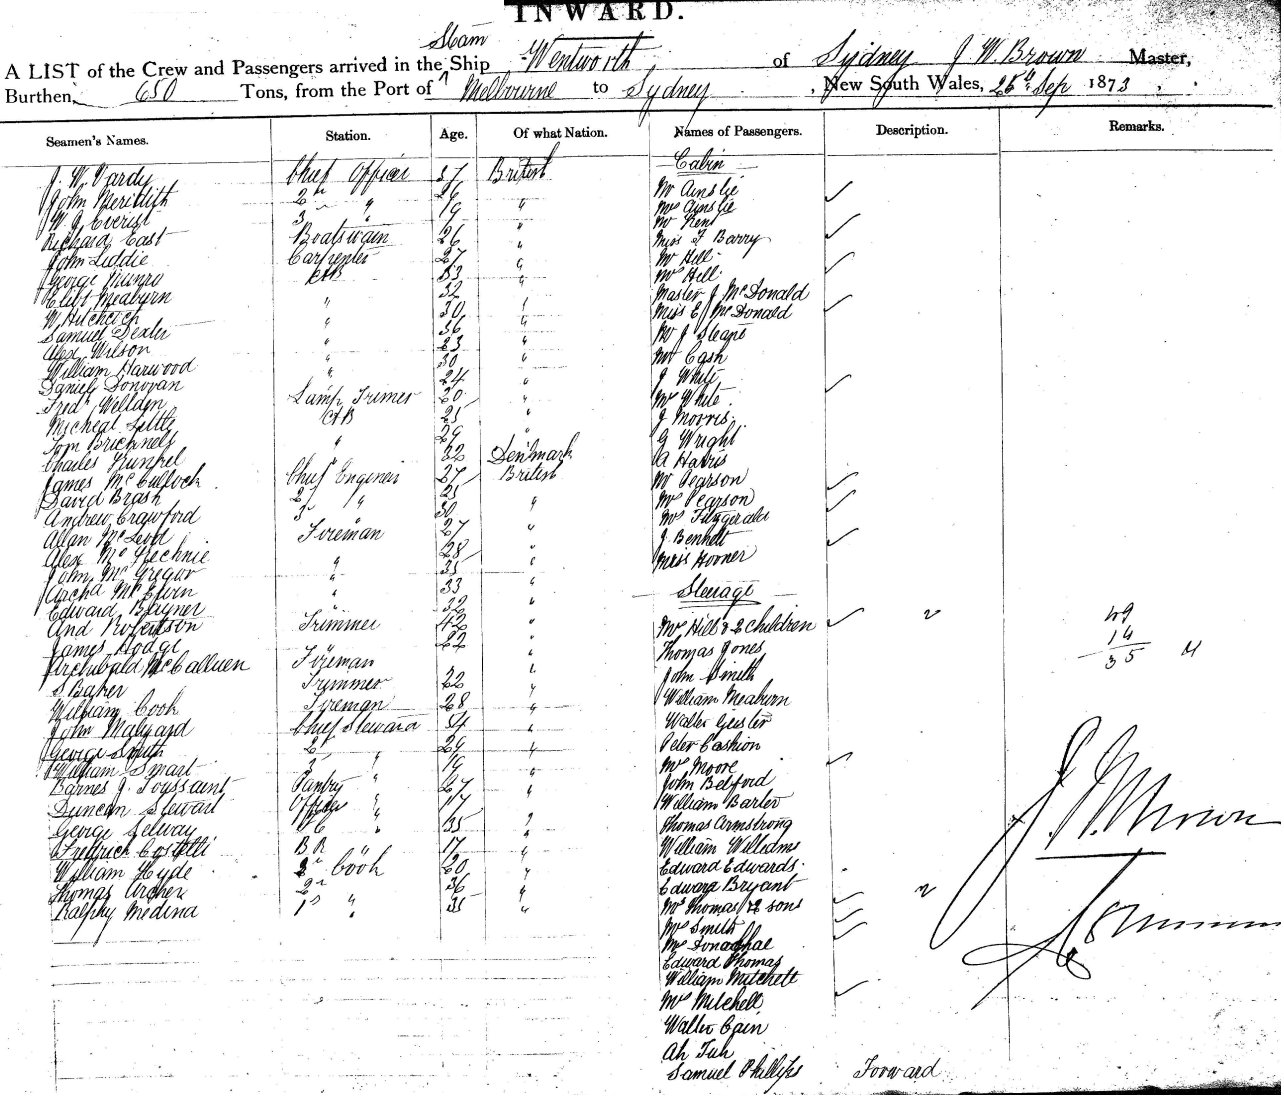 INWARD.
Steam
A LIST of the Crew and Passengers arrived in the Ship Wentworth of Sydney J. W. Brown Master,
Burthen, 650 Tons, from the Port of Melbourne to Sydney, New South Wales, 26th Sep 1873
Seamen's Names. Station. Age. Of what Nation. Names of Passengers. Description. Remarks.
J. W. Vardy Chief Officer 37 British
John Meridith 2nd " 26 "
W J Everist 3 " 19 "
Richard East Boatswain 26 "
John Liddie Carpenter 27 "
George Munro AB 33 "
Mearyn " 32
W Hitchcock " 30 "
Samuel Dexter " 36 "
Alex Wilson " 23 "
William Harwood " 30 "
Daniel Donovan 24 "
Fredk Wellden Lamp Trimer 20 "
Micheal Little AB 25 "
Tom Bricknell " 29 "
Charles 32 Denmark
James McCullock Chief Engineer 27 British
David Brash 2 " 25
Andrew Crawford 3 " 30 "
Allan McLeod Fireman 27 "
Alex McKechnie " 28 "
John McGregor " 35 "
McEwin " 33 "
Edward " 32 "
And Robertson Trimmer 42 "
James Hodge 22 "
Archibald McCalluen Fireman "
S Baker Trimmer 22 "
William Cook Fireman 28 "
John Malyard Chief Steward 54 "
George Smith 2 " 29 "
William Smart 3 " 19 "
Barnes J Toussaint Pantry " 27 "
Duncan Stewart Officers " 17
George Selway " 35 "
Fredrick Costelli BR " 17 "
William Hyde 3rd Cook 20 "
Thomas Archer 2nd " 36 "
Ralphy Medina 1st " 35 "
Cabin
Mr Ainslie
Mrs Ainslie
Mr Kent
Miss F Barry
Mr Hill
Mrs Hill
Master J McDonald
Miss E McDonald
Mr J Sleape
Mr Cash
J White
Mrs White
J Morris
G Wright
A Harris
Mr Pearson
Mrs Pearson
Mrs Fitzgerald
J Bennett
Miss Hooner
Steerage
Mrs Hill & 2 Children 2
Thomas Jones
John Smith
William Meaburn
Walter Geister
Peter Cashion
Mrs Moore
John Belford
William Barter
Thomas Armstrong
William Williams
Edward Edwards
Edward Bryant
Mrs Thomas & 2 sons 2
Mrs Smith
Mrs Donaghae
Edward Thomas
William Mitchell
Mrs Mitchell
Walter Cain
Ah Tuh
Samuel Phillips Forward
49
14
35